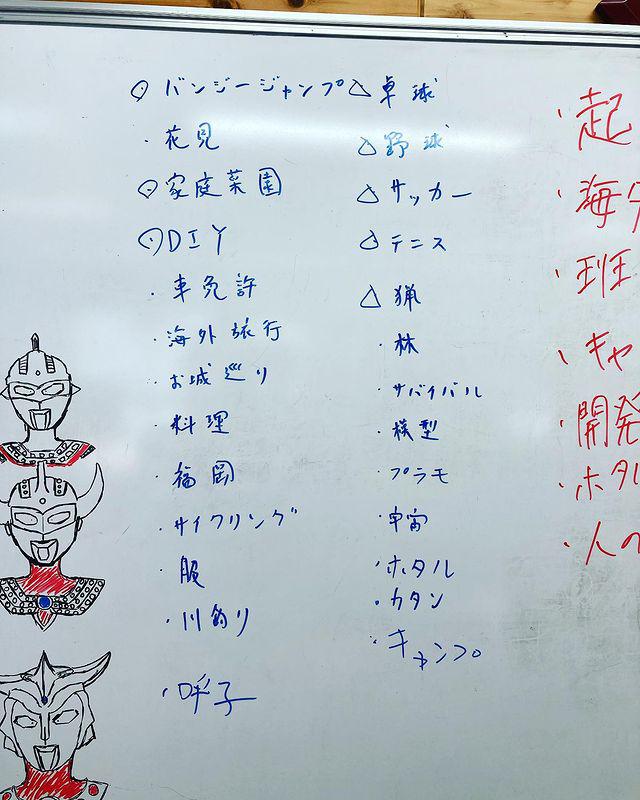 ◎バンジージャンプ
・花見
◎家庭菜園
◎DIY
・車免許
・海外旅行
・お城巡り
・料理
・福岡
・サイクリング
・服
・川釣り
・呼子
△卓球
△野球
△サッカー
△テニス
△猟
・林
・サバイバル
・模型
・プラモ
・宇宙
・ホタル
・カタン
・キャンプ
・起
・海外
・班
・キャ
・開発
・ホタル
・人の